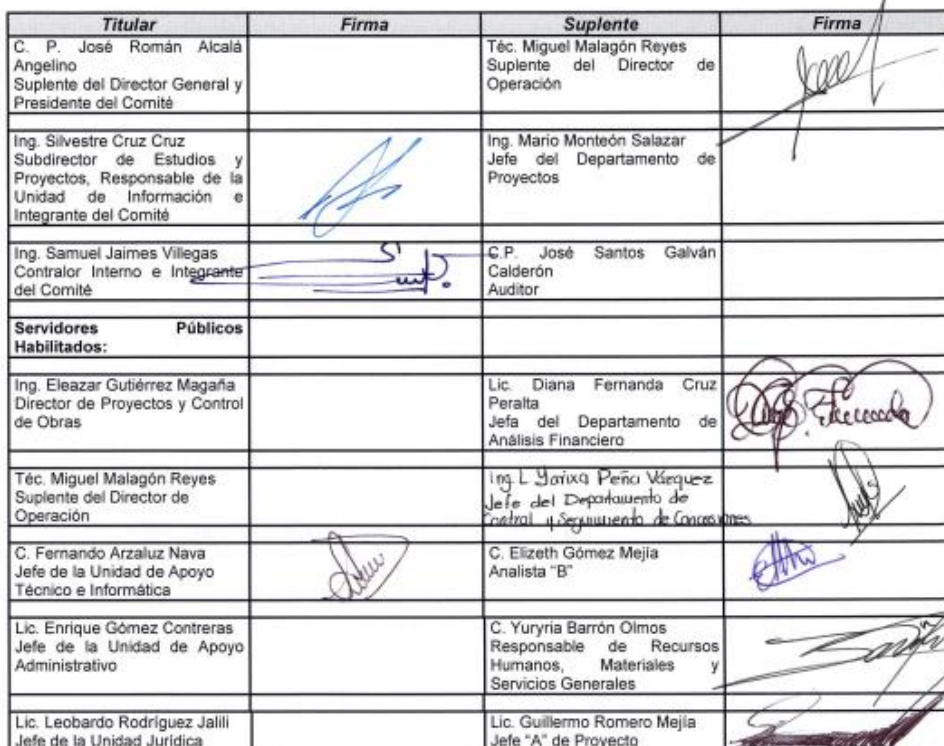 Titular Firma Suplente Firma
C. P. José Román Alcalá
Angelino
Suplente del Director General y
Presidente del Comité
Téc. Miguel Malagón Reyes
Suplente del Director de
Operación
Ing. Silvestre Cruz Cruz
Subdirector de Estudios y
Proyectos, Responsable de la
Unidad de Información e
Integrante del Comité
Ing. Mario Monteón Salazar
Jefe del Departamento de
Proyectos
Ing. Samuel Jaimes Villegas
Contralor Interno e Integrante
del Comité
C.P. José Santos Galván
Calderón
Auditor
Servidores Públicos
Habilitados:
Ing. Eleazar Gutiérrez Magaña
Director de Proyectos y Control
de Obras
Lic. Diana Fernanda Cruz
Peralta
Jefa del Departamento de
Análisis Financiero
Téc. Miguel Malagón Reyes
Suplente del Director de
Operación
Ing. L Yarixa Peña Vázquez
Jefe del Departamento de
Control y Seguimiento de Concesiones
C. Fernando Arzaluz Nava
Jefe de la Unidad de Apoyo
Técnico e Informática
C. Elizeth Gómez Mejía
Analista "B"
Lic. Enrique Gómez Contreras
Jefe de la Unidad de Apoyo
Administrativo
C. Yuryria Barrón Olmos
Responsable de Recursos
Humanos, Materiales y
Servicios Generales
Lic. Leobardo Rodríguez Jalili
Jefe de la Unidad Jurídica
Lic. Guillermo Romero Mejía
Jefe "A" de Proyecto